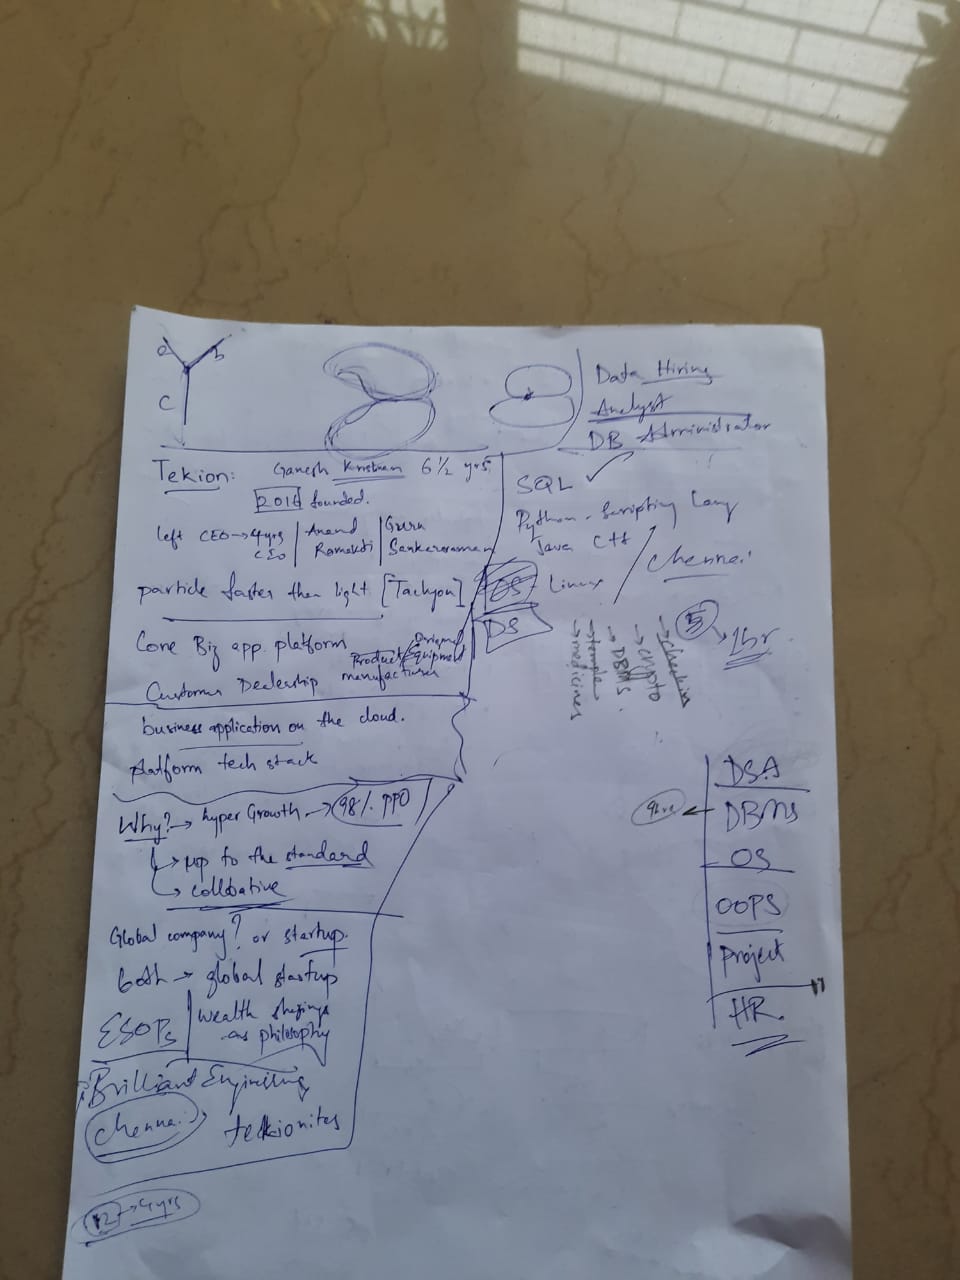 a
b
C
Data Hiring
Analyst
DB Administrator
Tekion: Ganesh 6 1/2 yrs.
2016 founded.
left CEO → 4yrs | Anand | Guru
CEO
Sankararaman
particle faster then light [Tachyon]
Core Biz app platform
Product / Original Equipment
manufacturer
Customer Dealership
business application on the cloud.
platform tech stack
Why? → hyper Growth → 98% PPO
→ up to the standard
→ collbative
Global company? or startup.
both → global startup
ESOPs | wealth sharing
as philosophy
Brilliant
Chennai
tekionites
12 → 4yrs
SQL
Python - Scripting Lang
Java C++
OS Linux
DS
Chennai
5 → 1hr
→ crypto
→ DBMS.
→ temple
→ medicines
DSA
DBMS
OS
OOPS
Project
HR